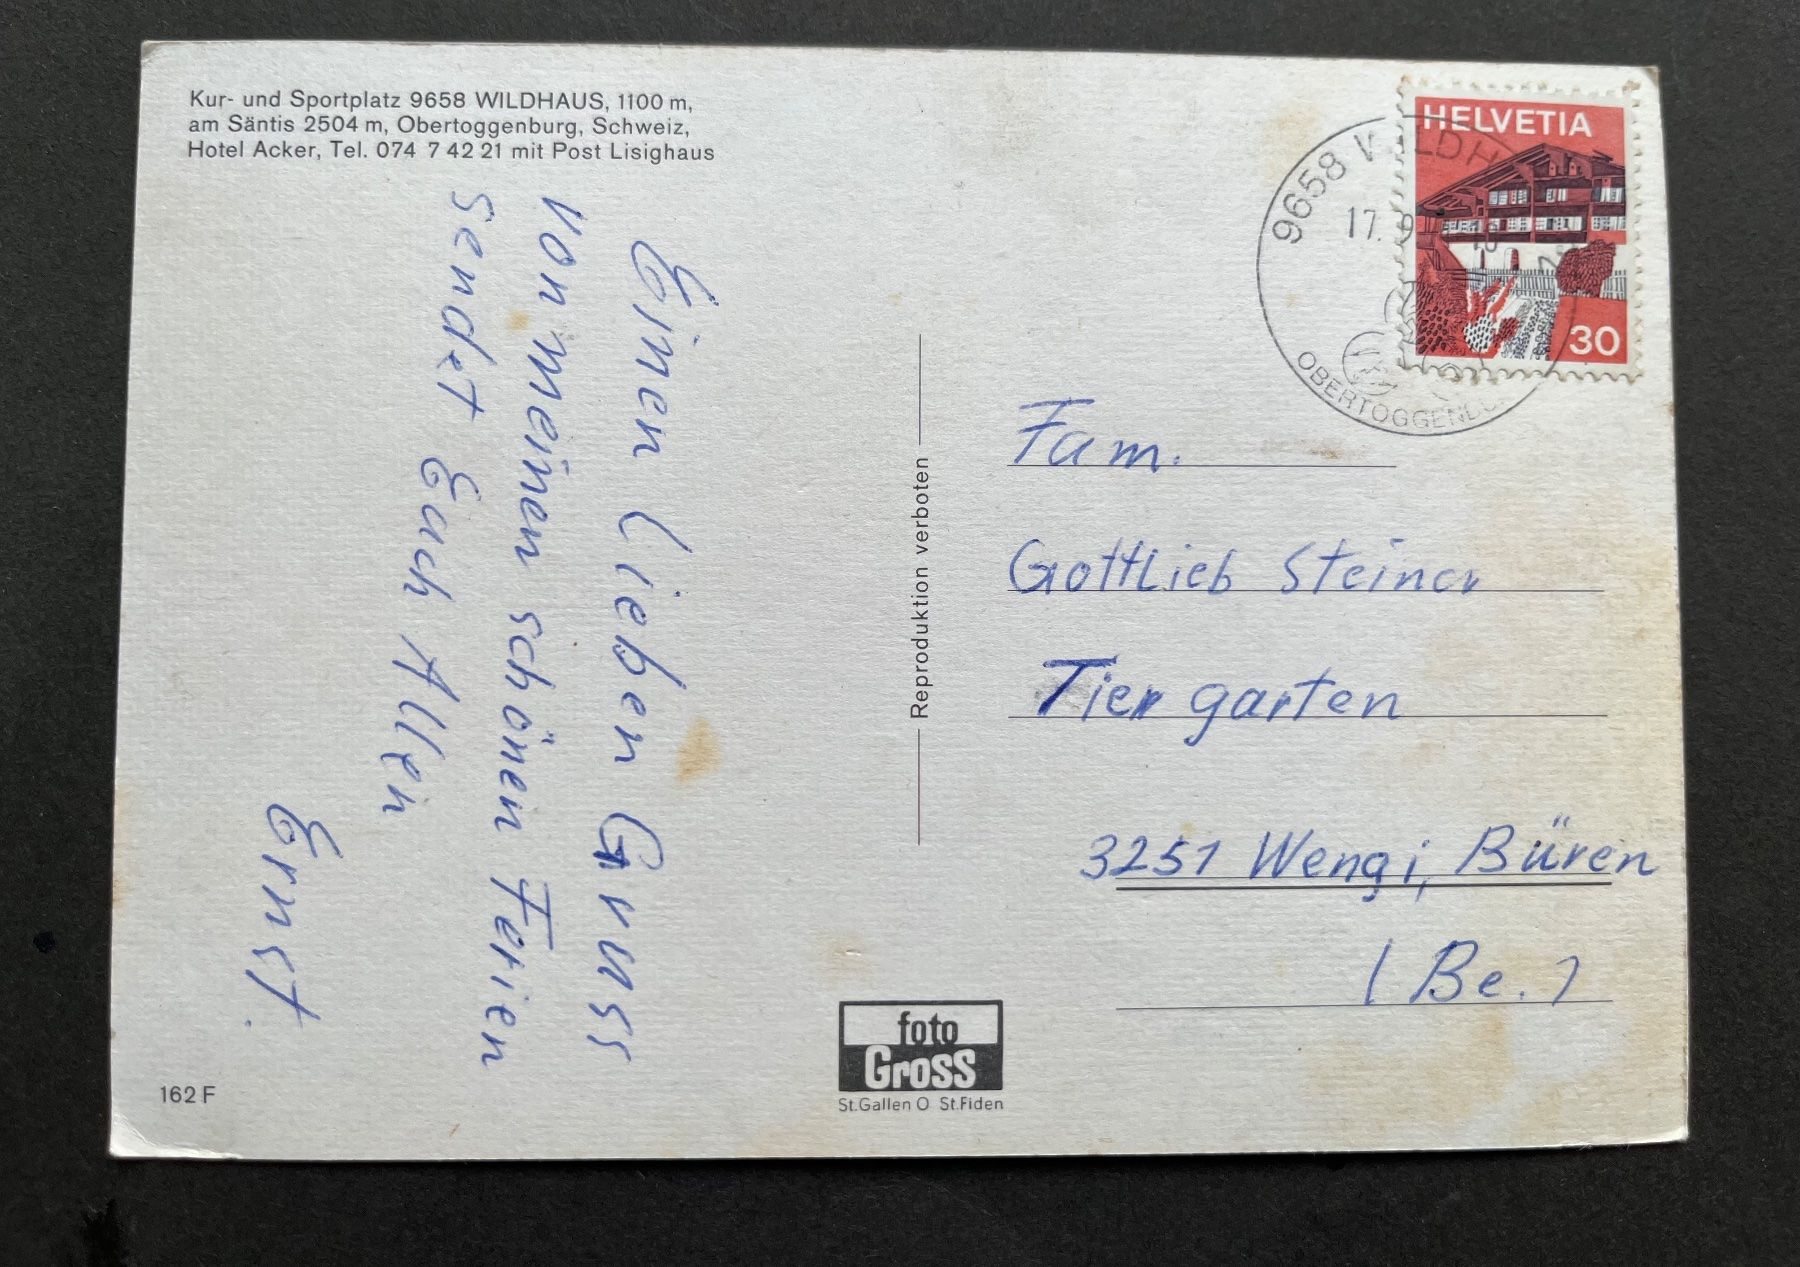 Kur- und Sportplatz 9658 WILDHAUS, 1100 m,
am Säntis 2504 m, Obertoggenburg, Schweiz,
Hotel Acker, Tel. 074 7 42 21 mit Post Lisighaus
Einen lieben Gruss
von meinen schönen Ferien
sendet Euch Allen
Ernst.
162 F
Reproduktion verboten
foto
Gross
St.Gallen O St.Fiden
HELVETIA
30
9658 WILDH
17. 9
OBERTOGGENBU
Fam.
Gottlieb Steiner
Tiergarten
3251 Wengi, Büren
(Be.)